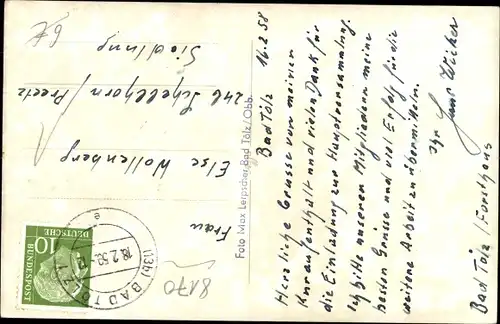 Bad Tölz 16.2.58
Herzliche Grüsse von meinem
Kuraufenthalt und vielen Dank für
die Einladung zur Hauptversammlung.
Ich bitte unseren Mitgliedern meine
besten Grüsse und viel Erfolg für die
weitere Arbeit zu übermitteln.
Ihr
Bad Tölz / Forsthaus
Foto Max Leipscher Bad Tölz/Obb.
Frau
Else Wollenberg
24b Schellhorn / Preetz
Siedlung
8170
(13b) BAD TÖLZ 1
18.2.58
e
10
DEUTSCHE
BUNDESPOST